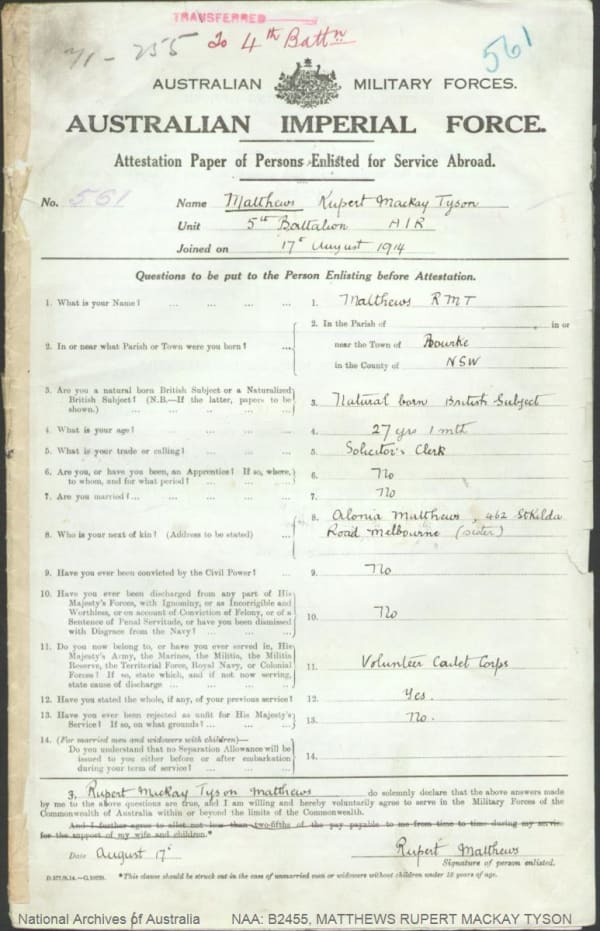 TRANSFERRED
71-255 To 4th Battn 561
AUSTRALIAN MILITARY FORCES.
AUSTRALIAN IMPERIAL FORCE.
Attestation Paper of Persons Enlisted for Service Abroad.
No. 561 Name Matthews Rupert Mackay Tyson
Unit 5th Battalion AIR
Joined on 17th August 1914
Questions to be put to the Person Enlisting before Attestation.
1. What is your Name? ... ... ... ... 1. Matthews R M T
2. In or near what Parish or Town were you born? ... 2. In the Parish of in or
near the Town of Bourke
in the County of NSW
3. Are you a natural born British Subject or a Naturalized
British Subject? (N.B.—If the latter, papers to be
shown.) ... ... ... ... ... 3. Natural born British Subject
4. What is your age? ... ... ... ... 4. 27 yrs 1 mth
5. What is your trade or calling? ... ... ... 5. Solicitor's Clerk
6. Are you, or have you been, an Apprentice? If so, where,
to whom, and for what period? ... ... ... 6. No
7. Are you married? ... ... ... ... ... 7. No
8. Who is your next of kin? (Address to be stated) ... 8. Alonia Matthews, 462 St Kilda
Road Melbourne (sister)
9. Have you ever been convicted by the Civil Power? ... 9. No
10. Have you ever been discharged from any part of His
Majesty's Forces, with Ignominy, or as Incorrigible and
Worthless, or on account of Conviction of Felony, or of a
Sentence of Penal Servitude, or have you been dismissed
with Disgrace from the Navy? ... ... ... 10. No
11. Do you now belong to, or have you ever served in, His
Majesty's Army, the Marines, the Militia, the Militia
Reserve, the Territorial Force, Royal Navy, or Colonial
Forces? If so, state which, and if not now serving,
state cause of discharge ... ... ... ... 11. Volunteer Cadet Corps
12. Have you stated the whole, if any, of your previous service? 12. Yes.
13. Have you ever been rejected as unfit for His Majesty's
Service? If so, on what grounds? ... ... ... 13. No.
14. (For married men and widowers with children)—
Do you understand that no Separation Allowance will be
issued to you either before or after embarkation
during your term of service? ... ... ... 14.
Rupert Mackay Tyson Matthews do solemnly declare that the above answers made
by me to the above questions are true, and I am willing and hereby voluntarily agree to serve in the Military Forces of the
Commonwealth of Australia within or beyond the limits of the Commonwealth.
And I further agree to allot not less than two-fifths of the pay payable to me from time to time during my service
for the support of my wife and children.*
Date August 17th Rupert Matthews
Signature of person enlisted.
*This clause should be struck out in the case of unmarried men or widowers without children under 18 years of age.
National Archives of Australia NAA: B2455, MATTHEWS RUPERT MACKAY TYSON